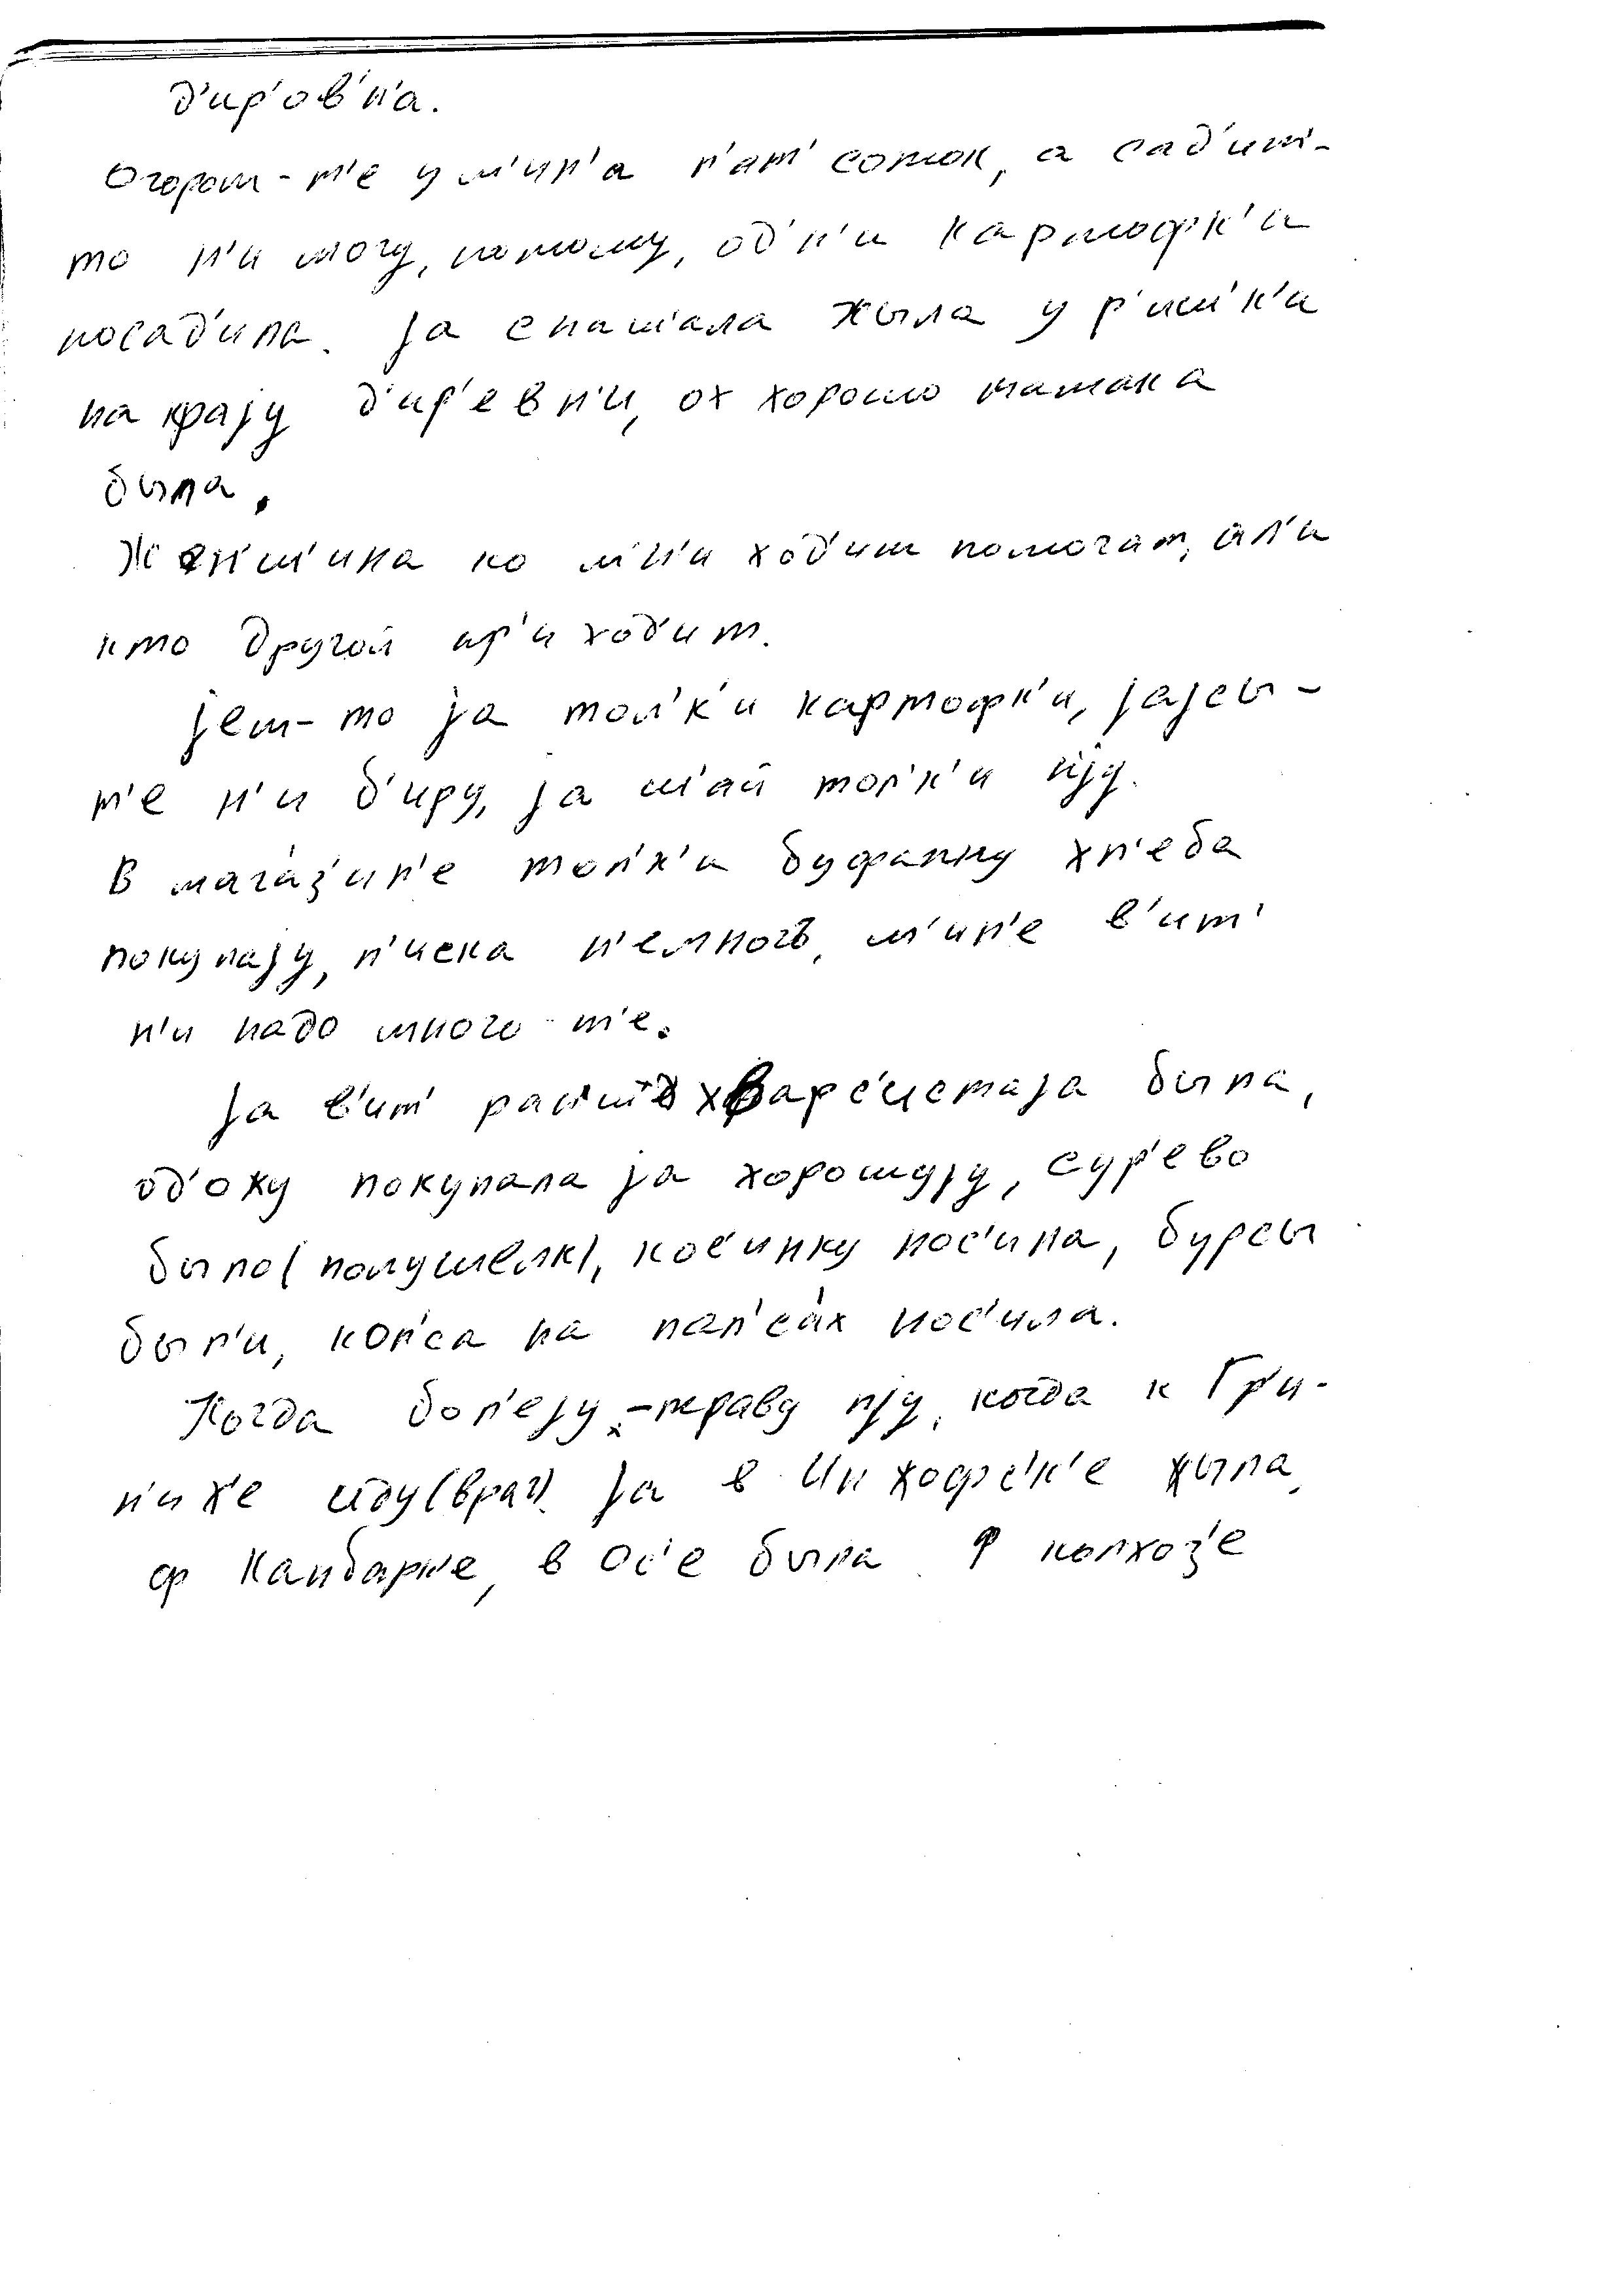 д'ир'ов'н'а.
Огорот-т'е у м'ин'а п'ат' соток, а сад'ит'-
то н'и могу, потому, од'н'и картофк'и
посад'ила. ја снаш'ала жыла у р'иш'к'и
на крају д'ир'евн'и, ох хорошо татака
была.
Жен'ш'ина ко м'н'и ход'ит помогат, ал'и
кто другой пр'иход'ит.
јем-то ја тол'к'и картофк'и, јајсы-
т'е н'и б'иру, ја ш'ай тол'к'и пју.
В магаз'ин'е тол'к'и буфанку хл'еба
покупају, п'иска н'емногъ, м'ин'е в'ит'
н'и надо много-т'е.
ја в'ит' ран'ш хварс'истаја была,
од'ожу покупала ја хорошују, сур'ево
было (полушелк), кос'инку нос'ила, бурсы
был'и, кол'са на пал'сах нос'ила.
Когда бол'еју -траву пју, когда к Гр'и-
н'ихе иду (врач). ја в Ижофс'к'е жыла,
ф Канбарк'е, в Ос'е была. Ф колхоз'е